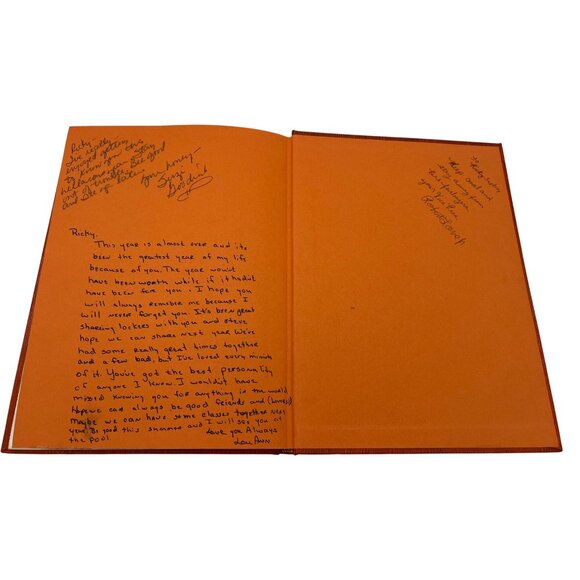 Ricky,
I've really
enjoyed getting
to know you this
year. Stay
out of trouble. Bee good
and see ya later
your honey,
Ricky,
This year is almost over and its
been the greatest year of my life
because of you. The year woun't
have been worth while if it hadn't
have been for you. I hope you
will always remember me because I
will never forget you. It's been great
sharing lockers with you and Steve
hope we can share next year. We've
had some really great times together
and a few bad, but I've loved every minute
of it. You've got the best personality
of anyone I know. I wouldn't have
missed knowing you for anything in the world
Hope we can always be good friends and (Lovers)
Maybe we can have some classes together next
year. Be good this summer and I will see you at
the pool.
Love you Always
Lou Ann
To Ricky